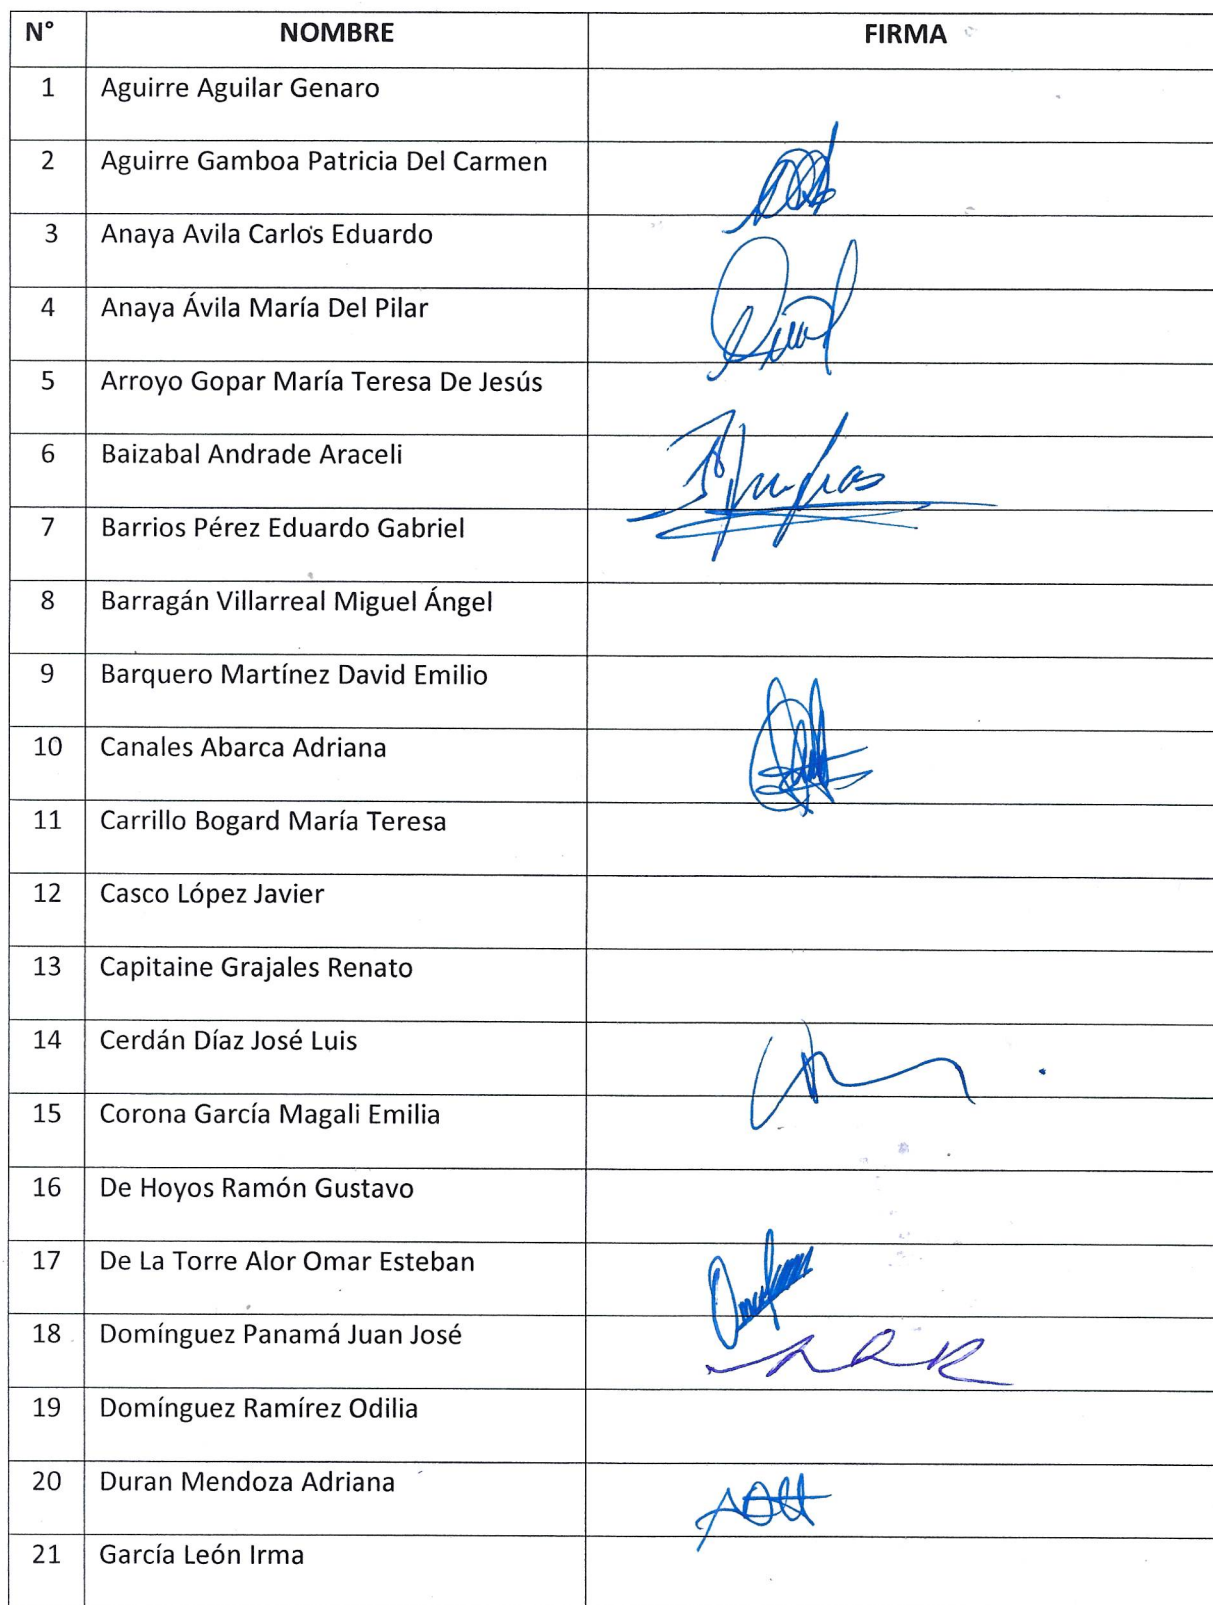 N° NOMBRE FIRMA
1 Aguirre Aguilar Genaro
2 Aguirre Gamboa Patricia Del Carmen
3 Anaya Avila Carlos Eduardo
4 Anaya Ávila María Del Pilar
5 Arroyo Gopar María Teresa De Jesús
6 Baizabal Andrade Araceli
7 Barrios Pérez Eduardo Gabriel
8 Barragán Villarreal Miguel Ángel
9 Barquero Martínez David Emilio
10 Canales Abarca Adriana
11 Carrillo Bogard María Teresa
12 Casco López Javier
13 Capitaine Grajales Renato
14 Cerdán Díaz José Luis
15 Corona García Magali Emilia
16 De Hoyos Ramón Gustavo
17 De La Torre Alor Omar Esteban
18 Domínguez Panamá Juan José
19 Domínguez Ramírez Odilia
20 Duran Mendoza Adriana
21 García León Irma